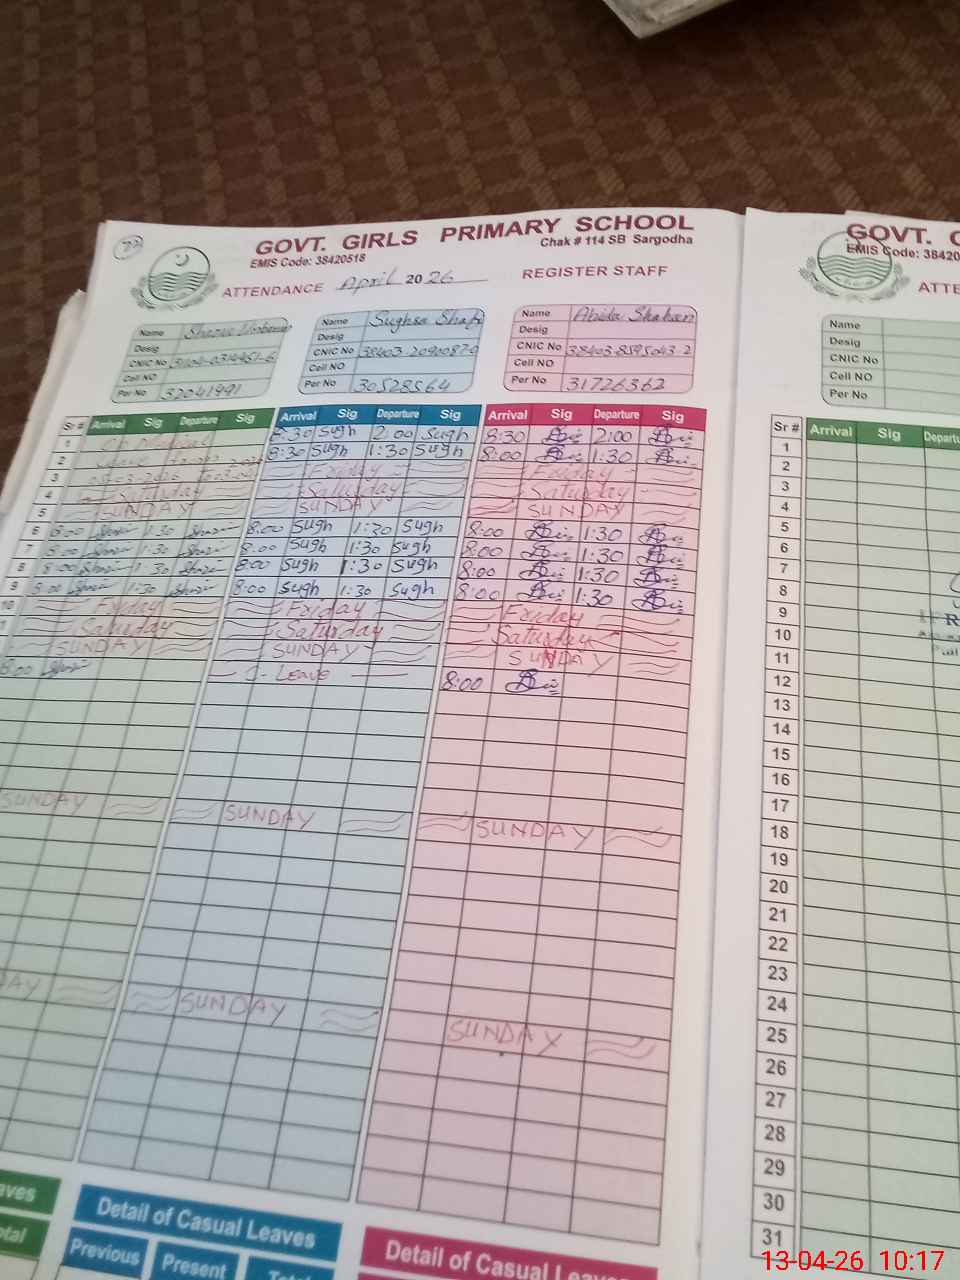 77
GOVT. GIRLS PRIMARY SCHOOL
EMIS Code: 38420518 Chak # 114 SB Sargodha
ATTENDANCE April 2026 REGISTER STAFF
Name
Desig
CNIC No
Cell NO
Per No 32041991
Name Sughsa Shafi
Desig
CNIC No 38403-2090087-0
Cell NO
Per No 30528564
Name Abida Shaheen
Desig
CNIC No 38403-8595043-2
Cell NO
Per No 31726362
Sr # Arrival Sig Departure Sig Arrival Sig Departure Sig Arrival Sig Departure Sig
1 8:30 Sugh 2:00 Sugh 8:30 2:00
2 8:30 Sugh 1:30 Sugh 8:00 1:30
3 Friday Friday
4 Saturday Saturday Saturday
5 SUNDAY SUNDAY SUNDAY
6 8:00 1:30 8:00 Sugh 1:30 Sugh 8:00 1:30
7 8:00 1:30 8:00 Sugh 1:30 Sugh 8:00 1:30
8 8:00 1:30 8:00 Sugh 1:30 Sugh 8:00 1:30
9 8:00 1:30 8:00 Sugh 1:30 Sugh 8:00 1:30
10 Friday Friday Friday
Saturday Saturday Saturday
SUNDAY SUNDAY SUNDAY
8:00 Leave 8:00
SUNDAY SUNDAY SUNDAY
DAY SUNDAY SUNDAY
aves
otal
Detail of Casual Leaves
Previous Present Total
Detail of Casual Leaves
GOVT. G
EMIS Code: 38420
ATTE
Name
Desig
CNIC No
Cell NO
Per No
Sr # Arrival Sig Departu
1
2
3
4
5
6
7
8
9
10
11
12
13
14
15
16
17
18
19
20
21
22
23
24
25
26
27
28
29
30
31
13-04-26 10:17